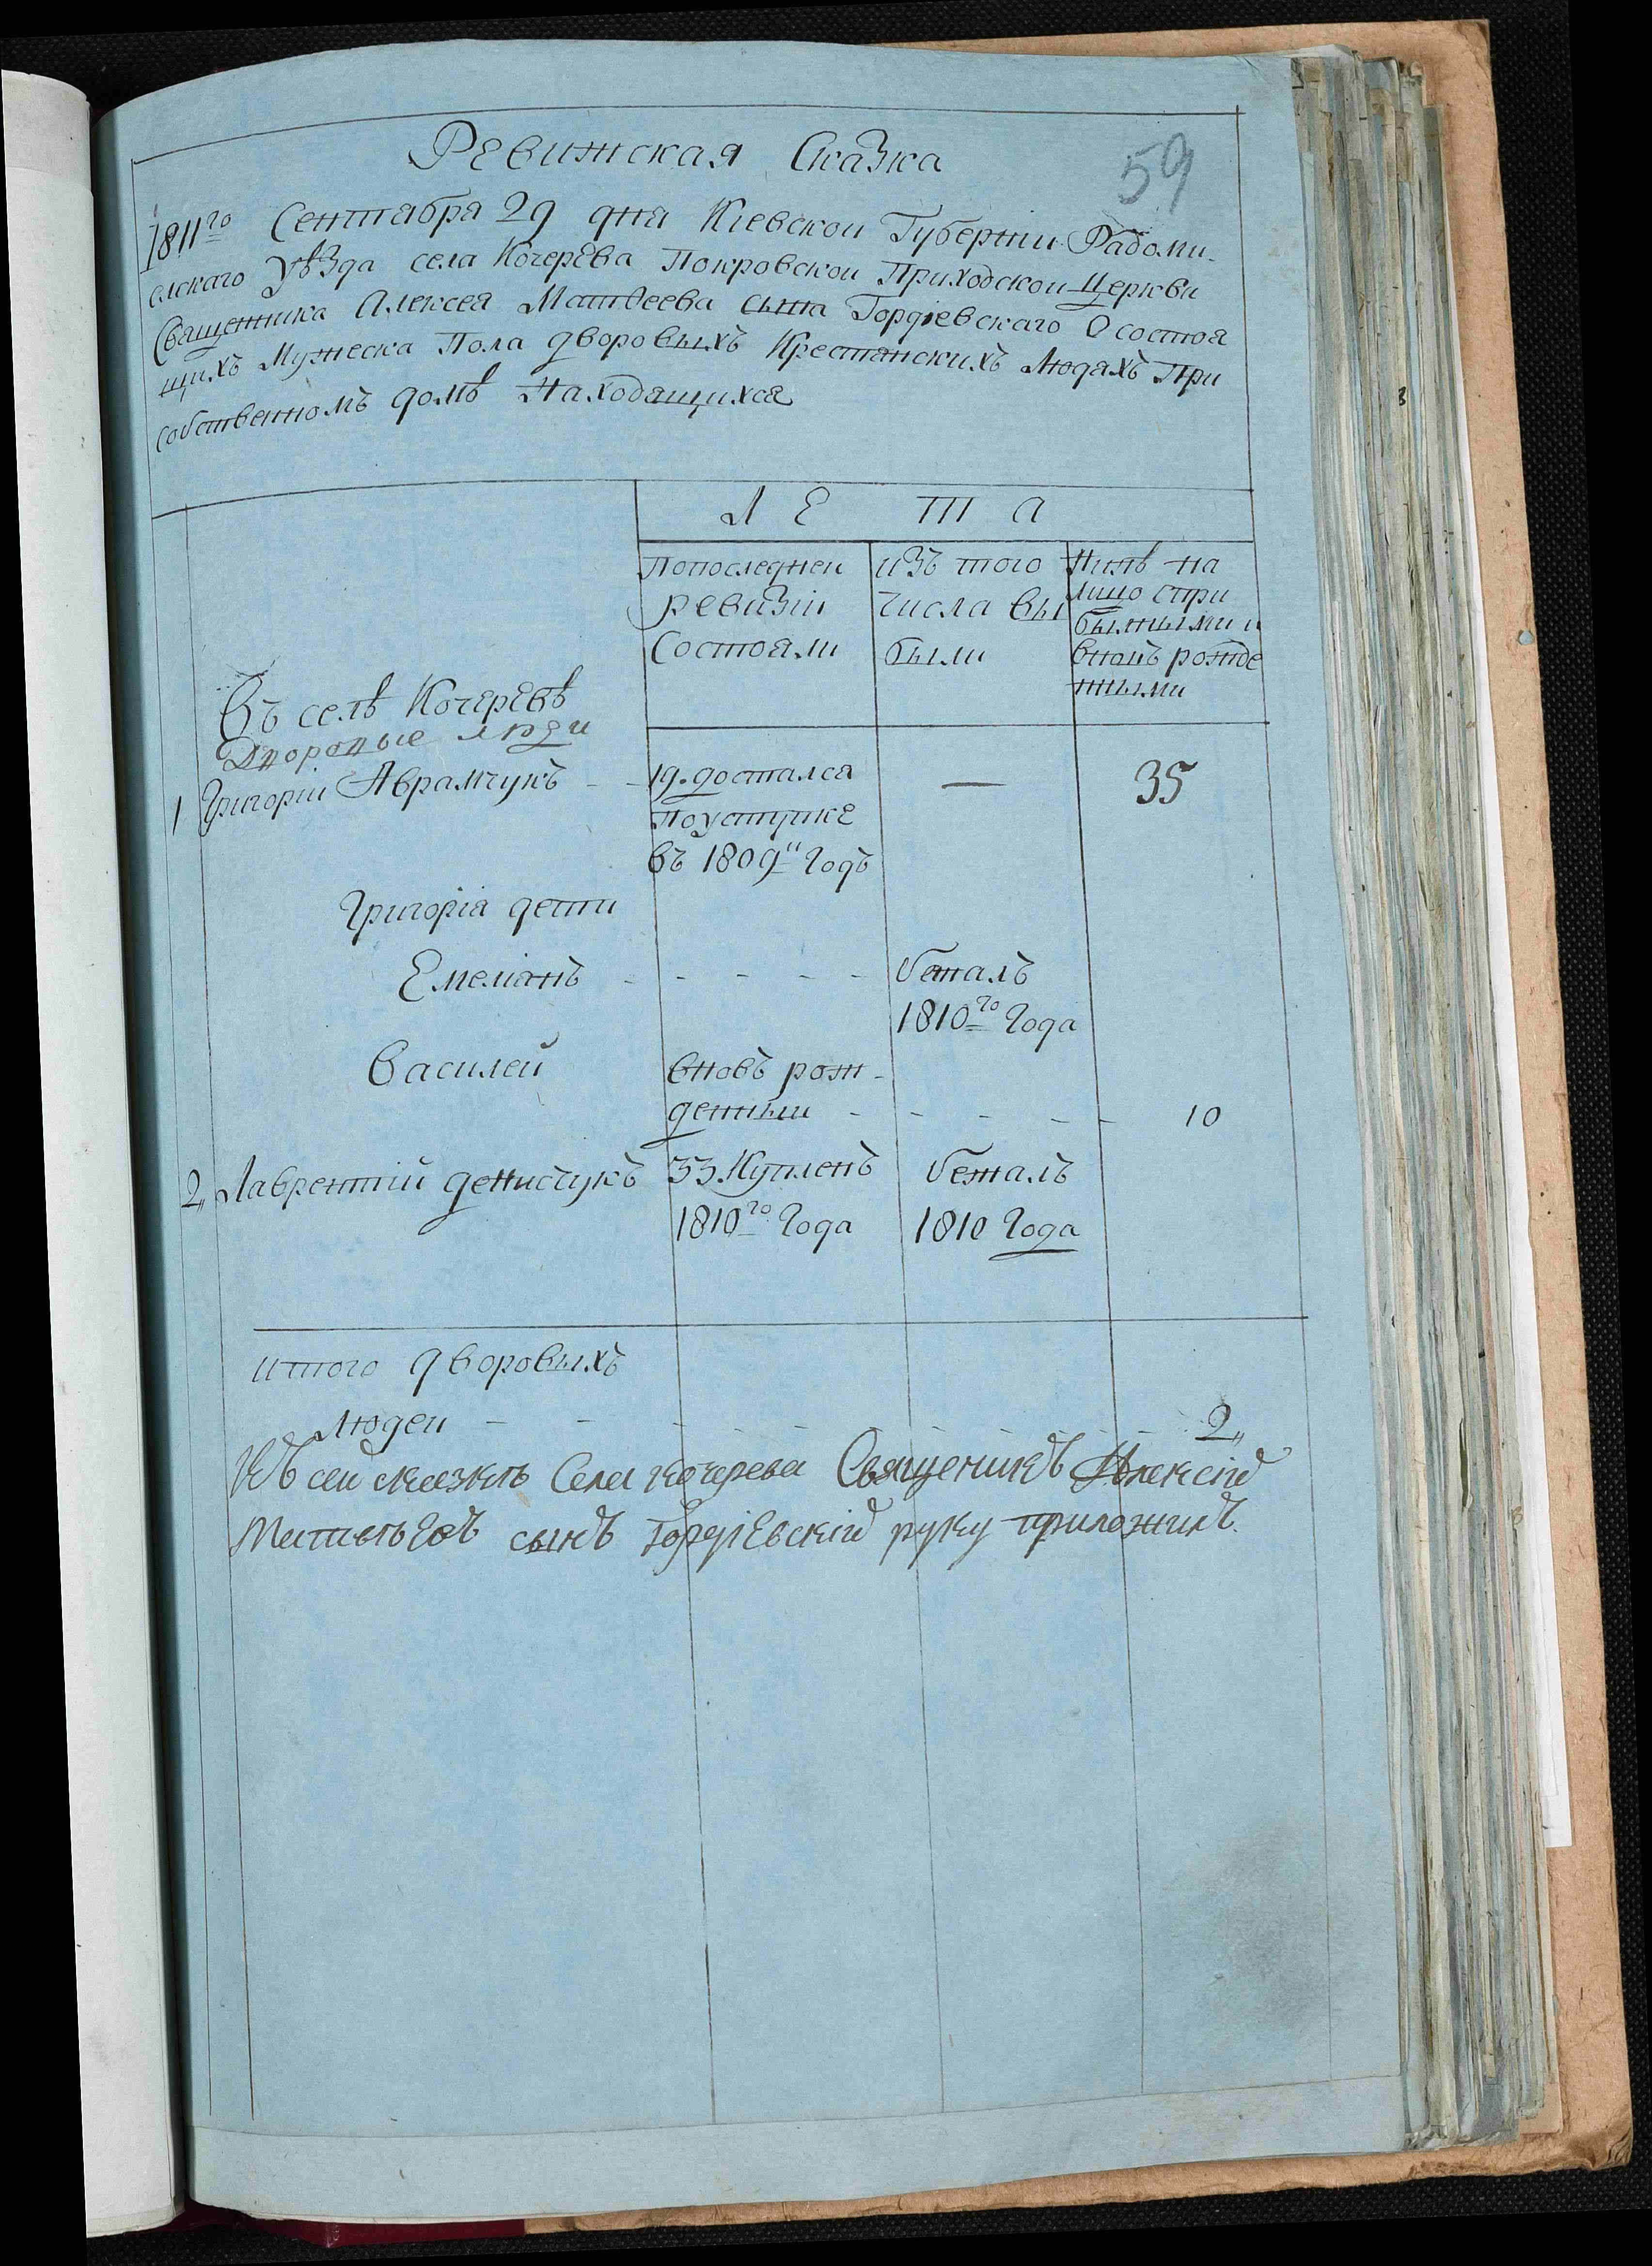 Ревижская Сказка
59
1811го Сентября 29 дня Кіевской Губернїи Радоми-
слскаго Уѣзда села Кочерева Покровской Приходской Церкви
Священника Алексея Матвеева сына Гордіевскаго О состоя
щихъ Мужеска Пола дворовыхъ Крестянскихъ Людяхъ При
собственномъ домѣ Находящихся
ЛЕТА
Попоследней изъ того Нинѣ на
ревизіи числа вы лицо спри
Состояли были былными и
вновъ рожде
нными
Въ селѣ Кочеревѣ
Дворовые люди
1 Григорій Аврамчукъ - - 19. достался — 35
поуступке
въ 1809й Годъ
Григорія дети
Емеліанъ - - - - - бежалъ
1810го Года
Василей вновъ рож-
денный - - - - - 10
2,, Лаврентій денисчукъ 33. Купленъ бежалъ
1810го Года 1810 Года
итого дворовыхъ
Людей - - - - - - 2,,
Къ сей сказкѣ Села кочерева Священикъ Алексій
Матѳѣевъ сынъ Гордіевскій руку приложилъ.